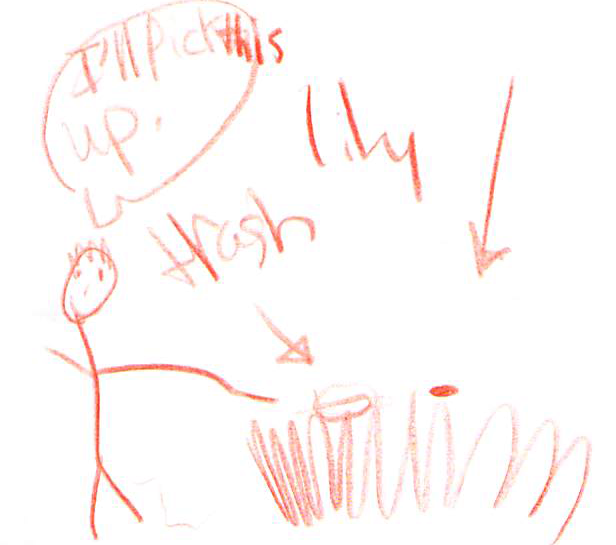 I'll Pick this
up.
lily
trash